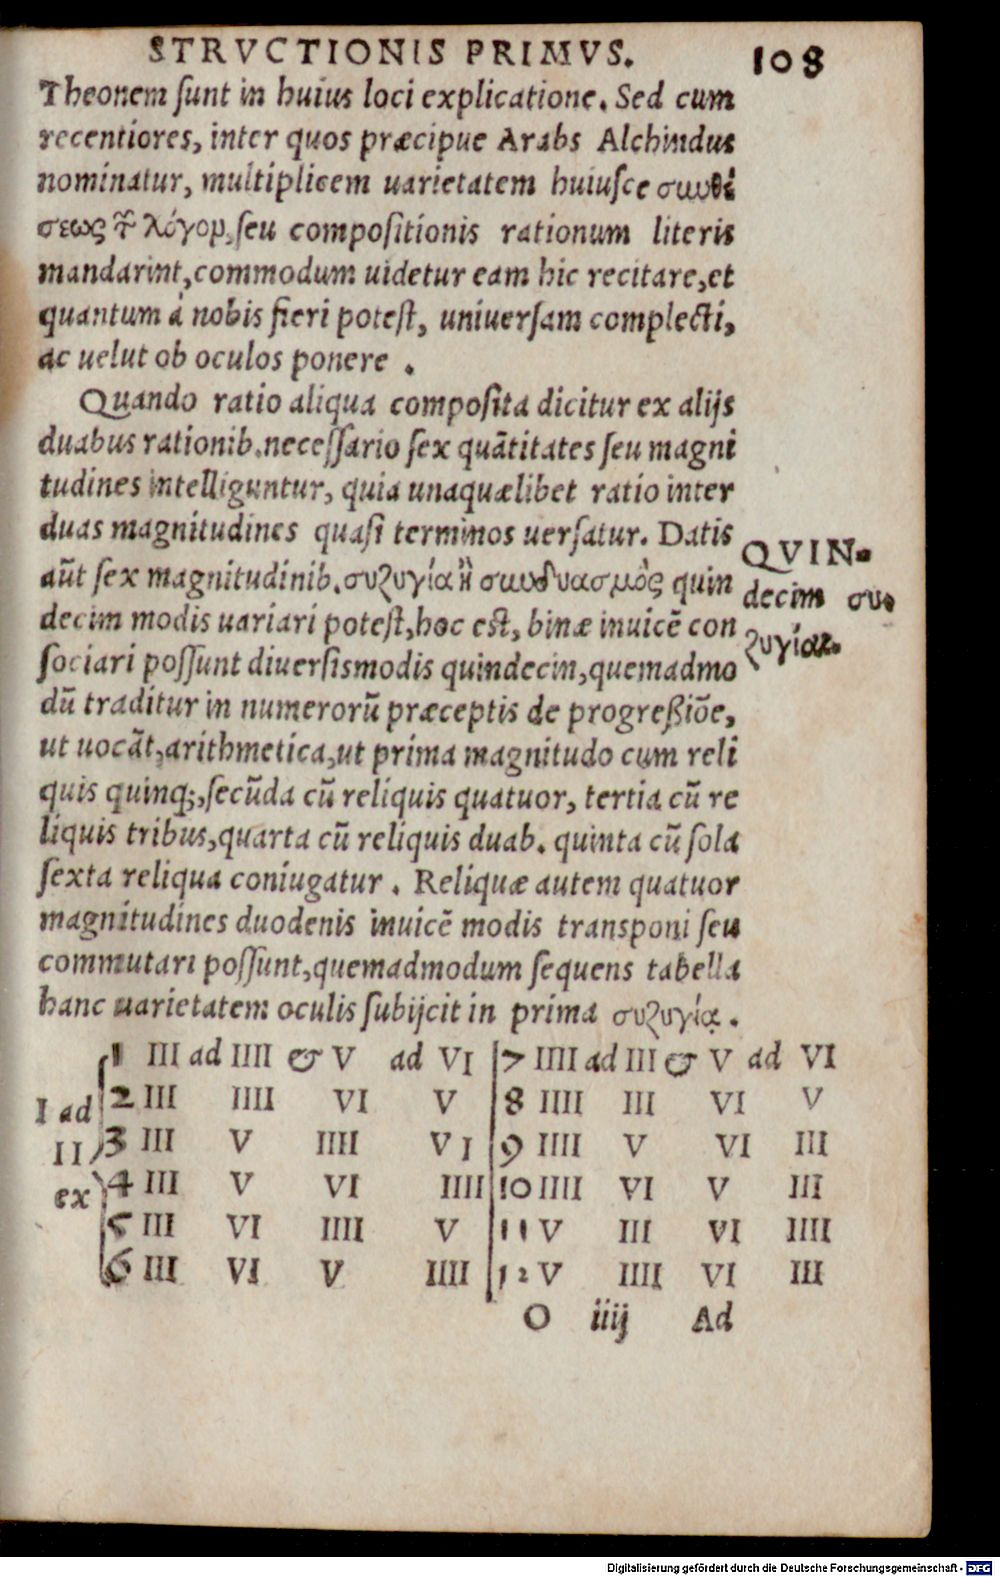 STRVCTIONIS PRIMVS. 108
Theonem sunt in huius loci explicatione. Sed cum
recentiores, inter quos præcipue Arabs Alchindus
nominatur, multiplicem uarietatem huiusce συνθέ
σεως τ λόγου, seu compositionis rationum literis
mandarint, commodum uidetur eam hic recitare, et
quantum à nobis fieri potest, uniuersam complecti,
ac uelut ob oculos ponere .
Quando ratio aliqua composita dicitur ex alijs
duabus rationib. necessario sex quãtitates seu magni
tudines intelliguntur, quia unaquælibet ratio inter
duas magnitudines quasi terminos uersatur. Datis
aũt sex magnitudinib. συζυγία ἢ συνδυασμὸς quin
decim modis uariari potest, hoc est, binæ inuicẽ con
sociari possunt diuersismodis quindecim, quemadmo
dũ traditur in numerorũ præceptis de progreßiõe,
ut uocãt, arithmetica, ut prima magnitudo cum reli
quis quinq;, secũda cũ reliquis quatuor, tertia cũ re
liquis tribus, quarta cũ reliquis duab. quinta cũ sola
sexta reliqua coniugatur . Reliquæ autem quatuor
magnitudines duodenis inuicẽ modis transponi seu
commutari possunt, quemadmodum sequens tabella
hanc uarietatem oculis subijcit in prima συζυγίᾳ .
QVIN-
decim συ-
ζυγίαι.
I ad
II
ex
1 III ad IIII & V ad VI 7 IIII ad III & V ad VI
2 III IIII VI V 8 IIII III VI V
3 III V IIII VI 9 IIII V VI III
4 III V VI IIII 10 IIII VI V III
5 III VI IIII V 11 V III VI IIII
6 III VI V IIII 12 V IIII VI III
O iiij Ad
Digitalisierung gefördert durch die Deutsche Forschungsgemeinschaft - DFG